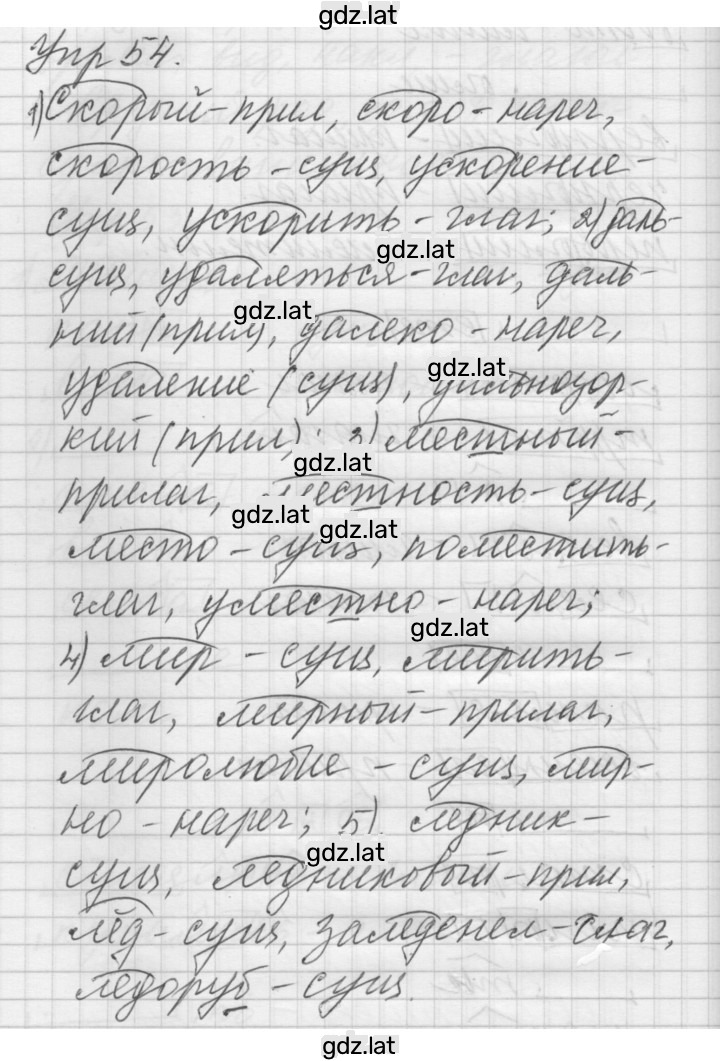 gdz.lat
Упр 54.
1) Скорый - прил, скоро - нареч,
скорость - сущ, ускорение -
сущ, ускорить - глаг; 2) даль -
gdz.lat
сущ, удаляться - глаг, даль-
gdz.lat
ний (прил), далеко - нареч,
gdz.lat
удаление (сущ), дальнозор-
кий (прил); 3) местный -
gdz.lat
прилаг, местность - сущ,
gdz.lat
gdz.lat
место - сущ, поместить -
глаг, уместно - нареч;
gdz.lat
4) мир - сущ, мирить -
глаг, мирный - прилаг,
миролюбие - сущ, мир-
но - нареч; 5) ледник -
gdz.lat
сущ, ледниковый - прил,
лёд - сущ, заледенел - глаг,
ледоруб - сущ.
gdz.lat